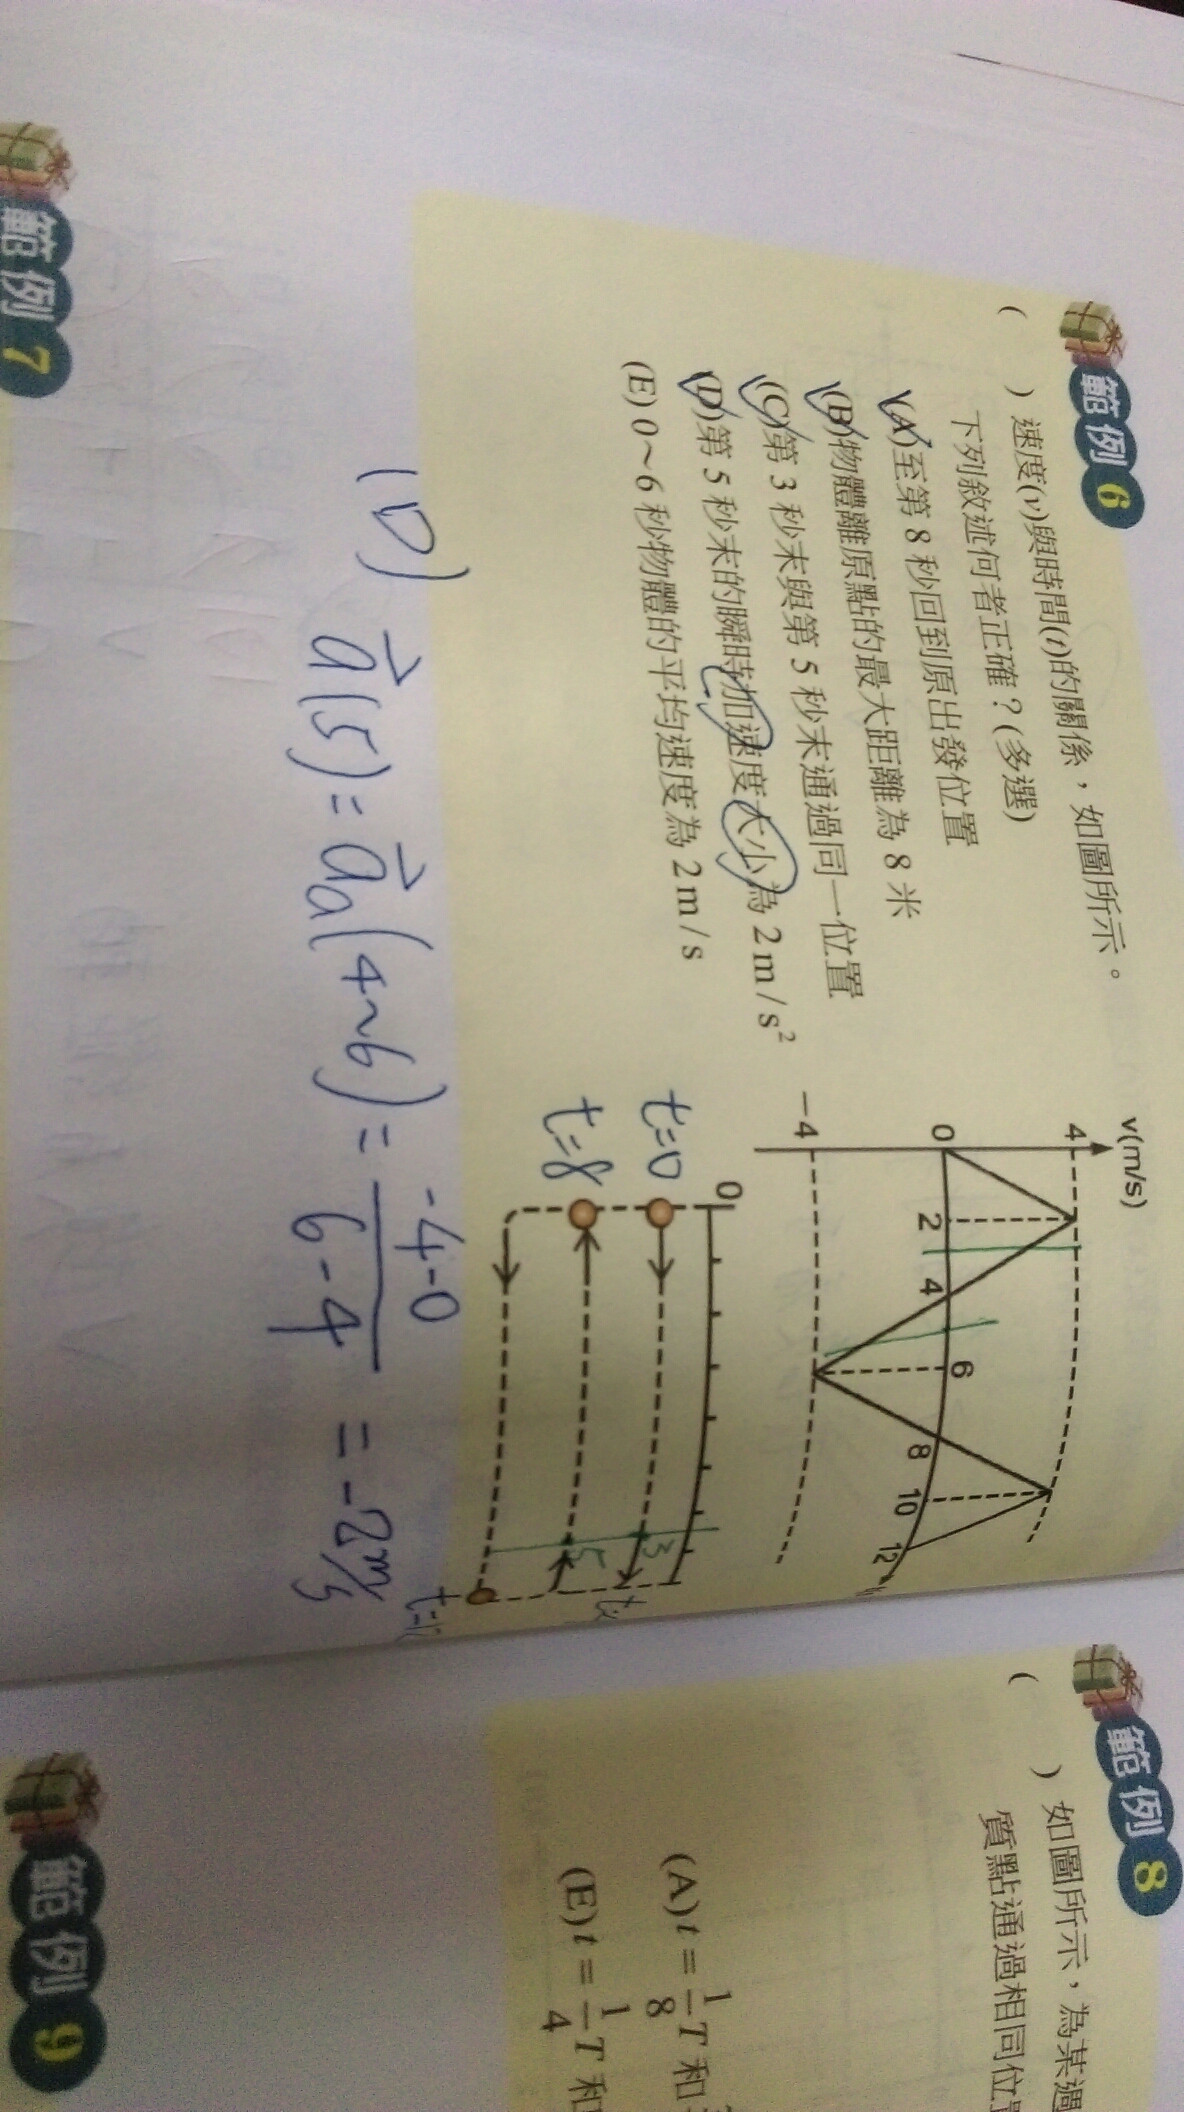 範例 6
( ) 速度(v)與時間(t)的關係,如圖所示。
下列敘述何者正確?(多選)
(A)至第 8 秒回到原出發位置
(B)物體離原點的最大距離為 8 米
(C)第 3 秒末與第 5 秒末通過同一位置
(D)第 5 秒末的瞬時加速度大小為 2 m/s²
(E) 0~6 秒物體的平均速度為 2 m/s
v(m/s)
4
0 2 4 6 8 10 12
-4
0
t=0
3
5
t=8
(D) a⃗(5) = a⃗a(4~6) = -4-0 / 6-4 = -2 m/s
範例 7
範例 8
( ) 如圖所示,為某週
質點通過相同位
(A) t = 1/8 T 和
(E) t = 1/4 T 和
範例 9